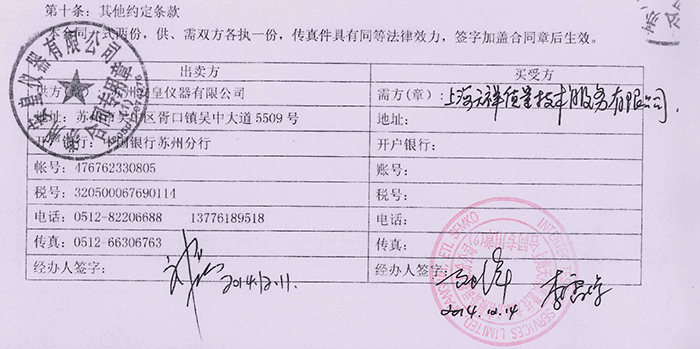 第十条：其他约定条款
本合同一式两份，供、需双方各执一份，传真件具有同等法律效力，签字加盖合同章后生效。
出卖方
买受方
皇仪器有限公司
需方(章)：上海天祥质量技术服务有限公司
胥口镇吴中大道5509号
地址：
国银行苏州分行
开户银行：
帐号：476762330805
账号：
税号：320500067690114
税号：
电话：0512-82206688 13776189518
电话：
传真：0512-66306763
传真：
经办人签字：
2014.12.11.
经办人签字：
2014.12.14
仪器有限公司
合同专用章
ETL SEMKO
SERVICES LIMITED
合同专用章